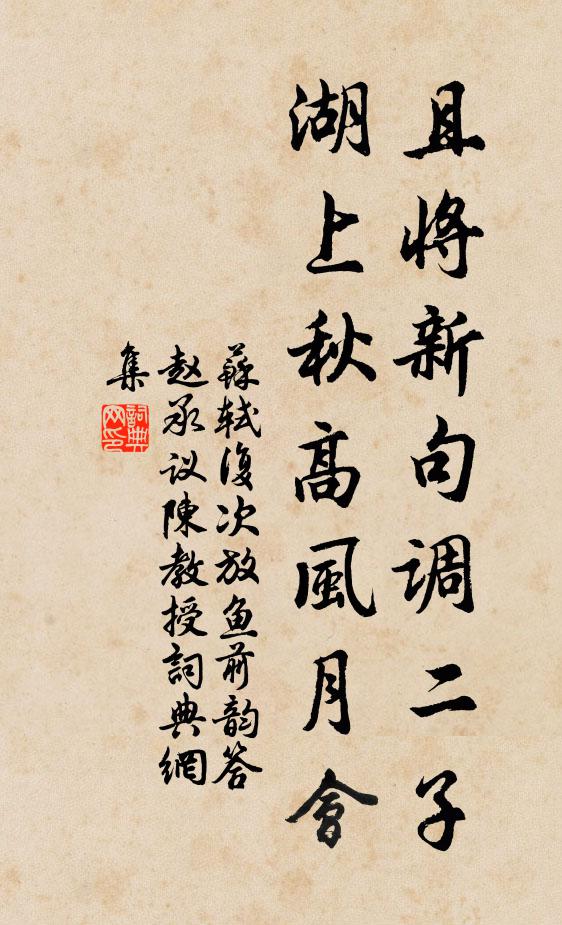 且将新句调二子
湖上秋高風月會
蘇軾復次放鱼前韵答
赵承议陳教授詞典網
集
詞典
网印